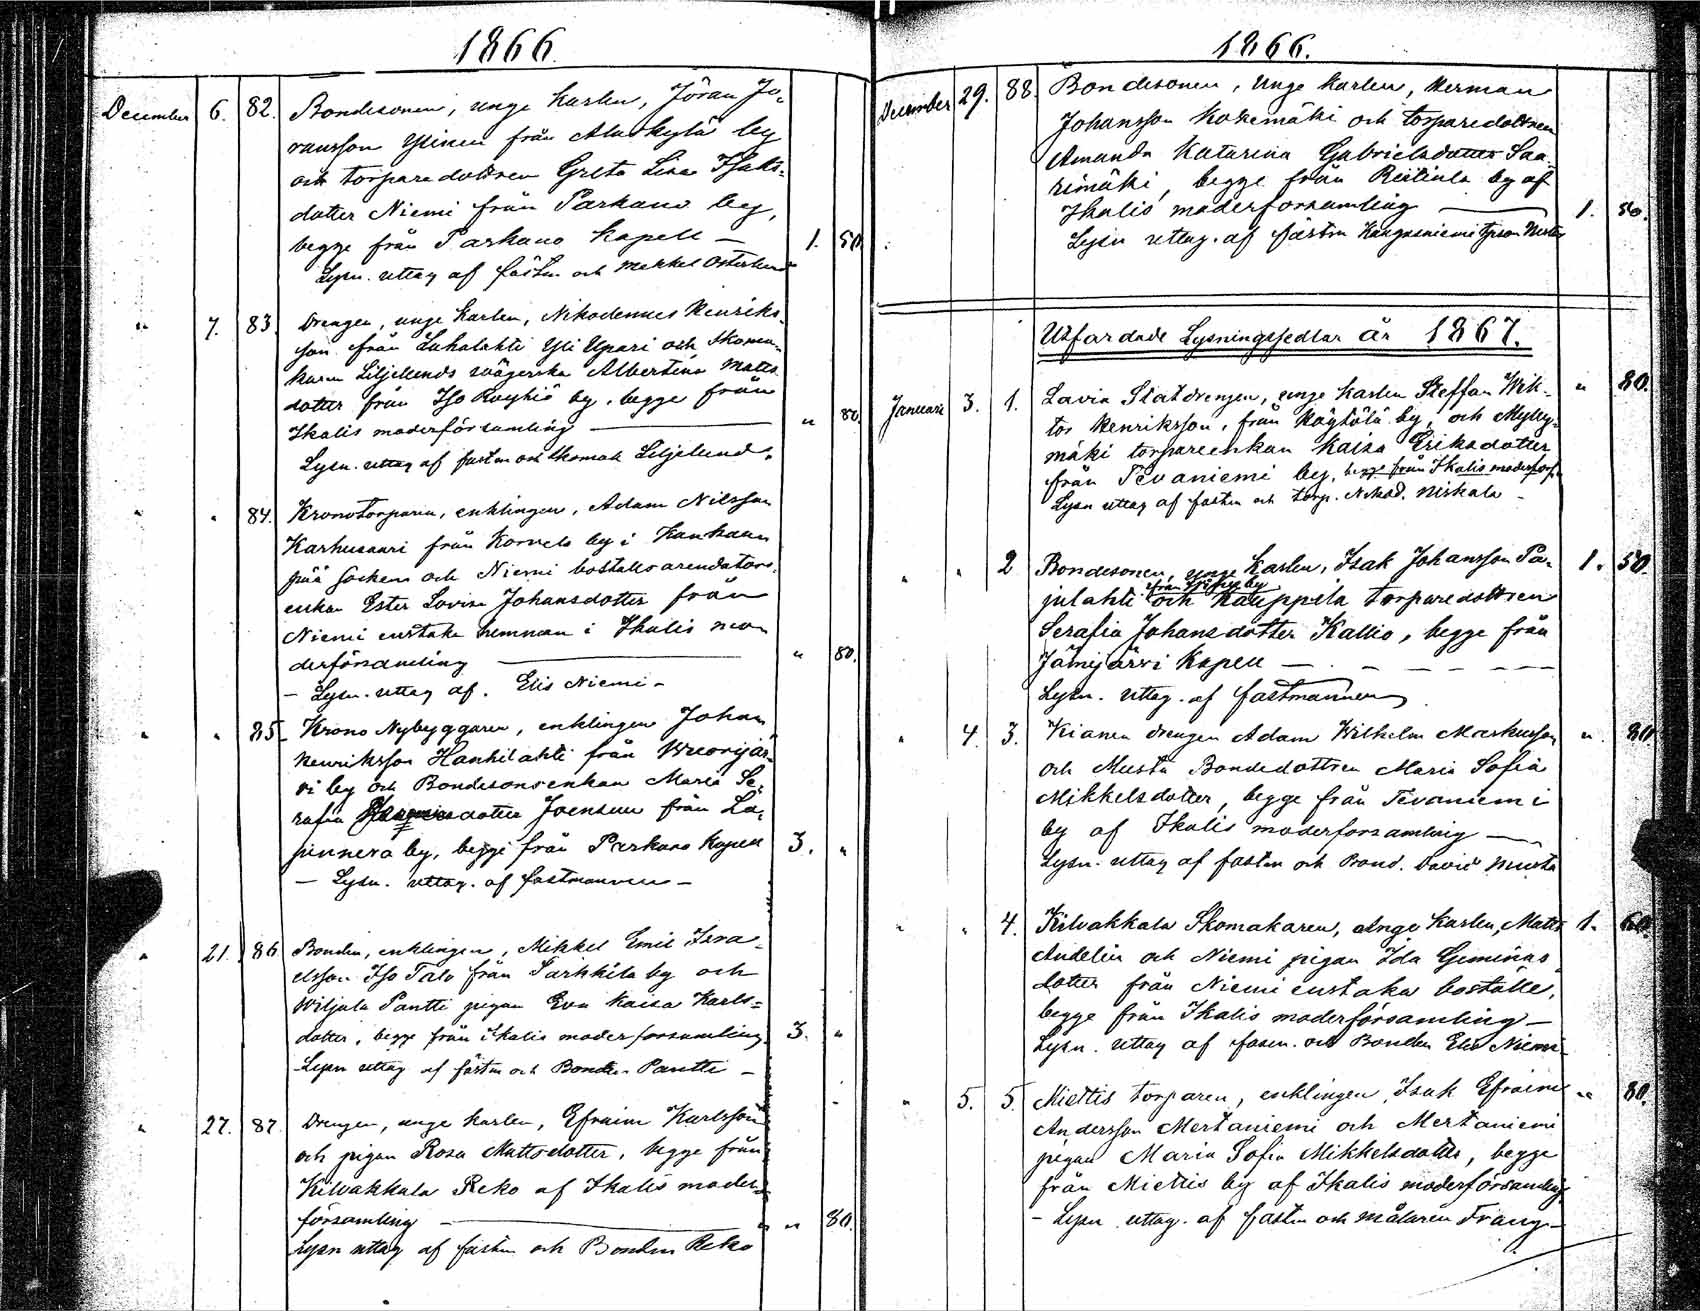 1866
December 6. 82. Bondesonen, unge karlen, Jöran Jo-
ransson Ylinen från Alaskylä by
och torparedottren Greta Lisa Isaks-
dotter Niemi från Parkano by,
begge från Parkano kapell — 1. 50.
Lysn. uttag af fästm och Mikkel Österlund
" 7. 83. Drengen, unge karlen, Nikodemus Henriks-
son från Luhalahti Yli Upari och Skoma-
karen Liljelunds svägerska Albertina Matts-
dotter från Iso Röyhiö by, begge från
Ikalis moderförsamling — " 80.
Lysn. uttag af fästm och Skomak Liljelund.
" " 84. Kronotorparen, enklingen, Adam Nilsson
Karhusaari från Korvela by i Kankaan
pää socken och Niemi boställs arendators
enkan Ester Lovisa Johansdotter från
Niemi enstaka hemman i Ikalis mo-
derförsamling — " 80.
— Lysn. uttag af. Elis Niemi —
" " 85. Krono Nybyggaren, enklingen Johan
Henriksson Hanhilahti från Wuorijär-
vi by och Bondesonsenkan Maria Se-
rafia dotter Joensuu från La-
pinnera by, begge från Parkano Kapell 3. "
— Lysn. uttag. af fästmannen —
" 21. 86. Bonden, enklingen, Mikkel Emil Isra-
elsson Iso Talo från Sarkkila by och
Wiljala Pantti pigan Eva Kaisa Karls-
dotter, begge från Ikalis moderforsamling 3. "
Lysn uttag af fästm och Bonden Pantti —
" 27. 87. Drengen, unge karlen, Efraim Karlsson
och pigan Rosa Mattsdotter, begge från
Kilvakkala Reko af Ikalis moder-
församling — " 80.
Lysn uttag af fästm och Bonden Reko
1866.
December 29. 88. Bondesonen, Unge Karlen, Herman
Johansson Koskemäki och torparedottren
Amanda Katarina Gabrielsdotter Saa-
rimäki, begge från Riitiala by af
Ikalis moderforsamling — 1. 50.
Lysn uttag. af fästm Kangasniemi
Utfärdade Lysningssedlar år 1867.
Januari 3. 1. Lavia Statdrengen, unge karlen Steffan Wik- " 80.
tor Henriksson, från Röytölä by, och Mylly-
mäki torpareenkan Kaisa Eriksdotter
från Tevaniemi by, begge från Ikalis moderförs.
Lysn uttag af fästm och torp. Nikod. Niskala —
" " 2 Bondesonen, unge Karlen, Isak Johansson Pa- 1. 50.
julahti och Kauppila torparedottren
Serafia Johansdotter Kallio, begge från
Jämijärvi Kapell —
Lysn. uttag. af fästmannen
" 4. 3. Kianen drengen Adam Wilhelm Markusson " 80
och Musta Bondedottren Maria Sofia
Mikkelsdotter, begge från Tevaniemi
by af Ikalis moderforsamling —
Lysn. uttag af fästm och Bond. David Musta
" " 4. Kilvakkala Skomakaren, Unge Karlen, Matts 1. 60.
Andelin och Niemi pigan Ida Geminas
dotter från Niemi enstaka boställe,
begge från Ikalis moderförsamling —
Lysn. uttag af fästm. och Bonden Elis Niemi
" 5. 5. Miettis torparen, enklingen, Isak Efraim " 80.
Andersson Mertaniemi och Mertaniemi
pigan Maria Sofia Mikkelsdotter, begge
från Miettis by af Ikalis moderförsamling
— Lysn uttag. af fästm och målaren Frang —